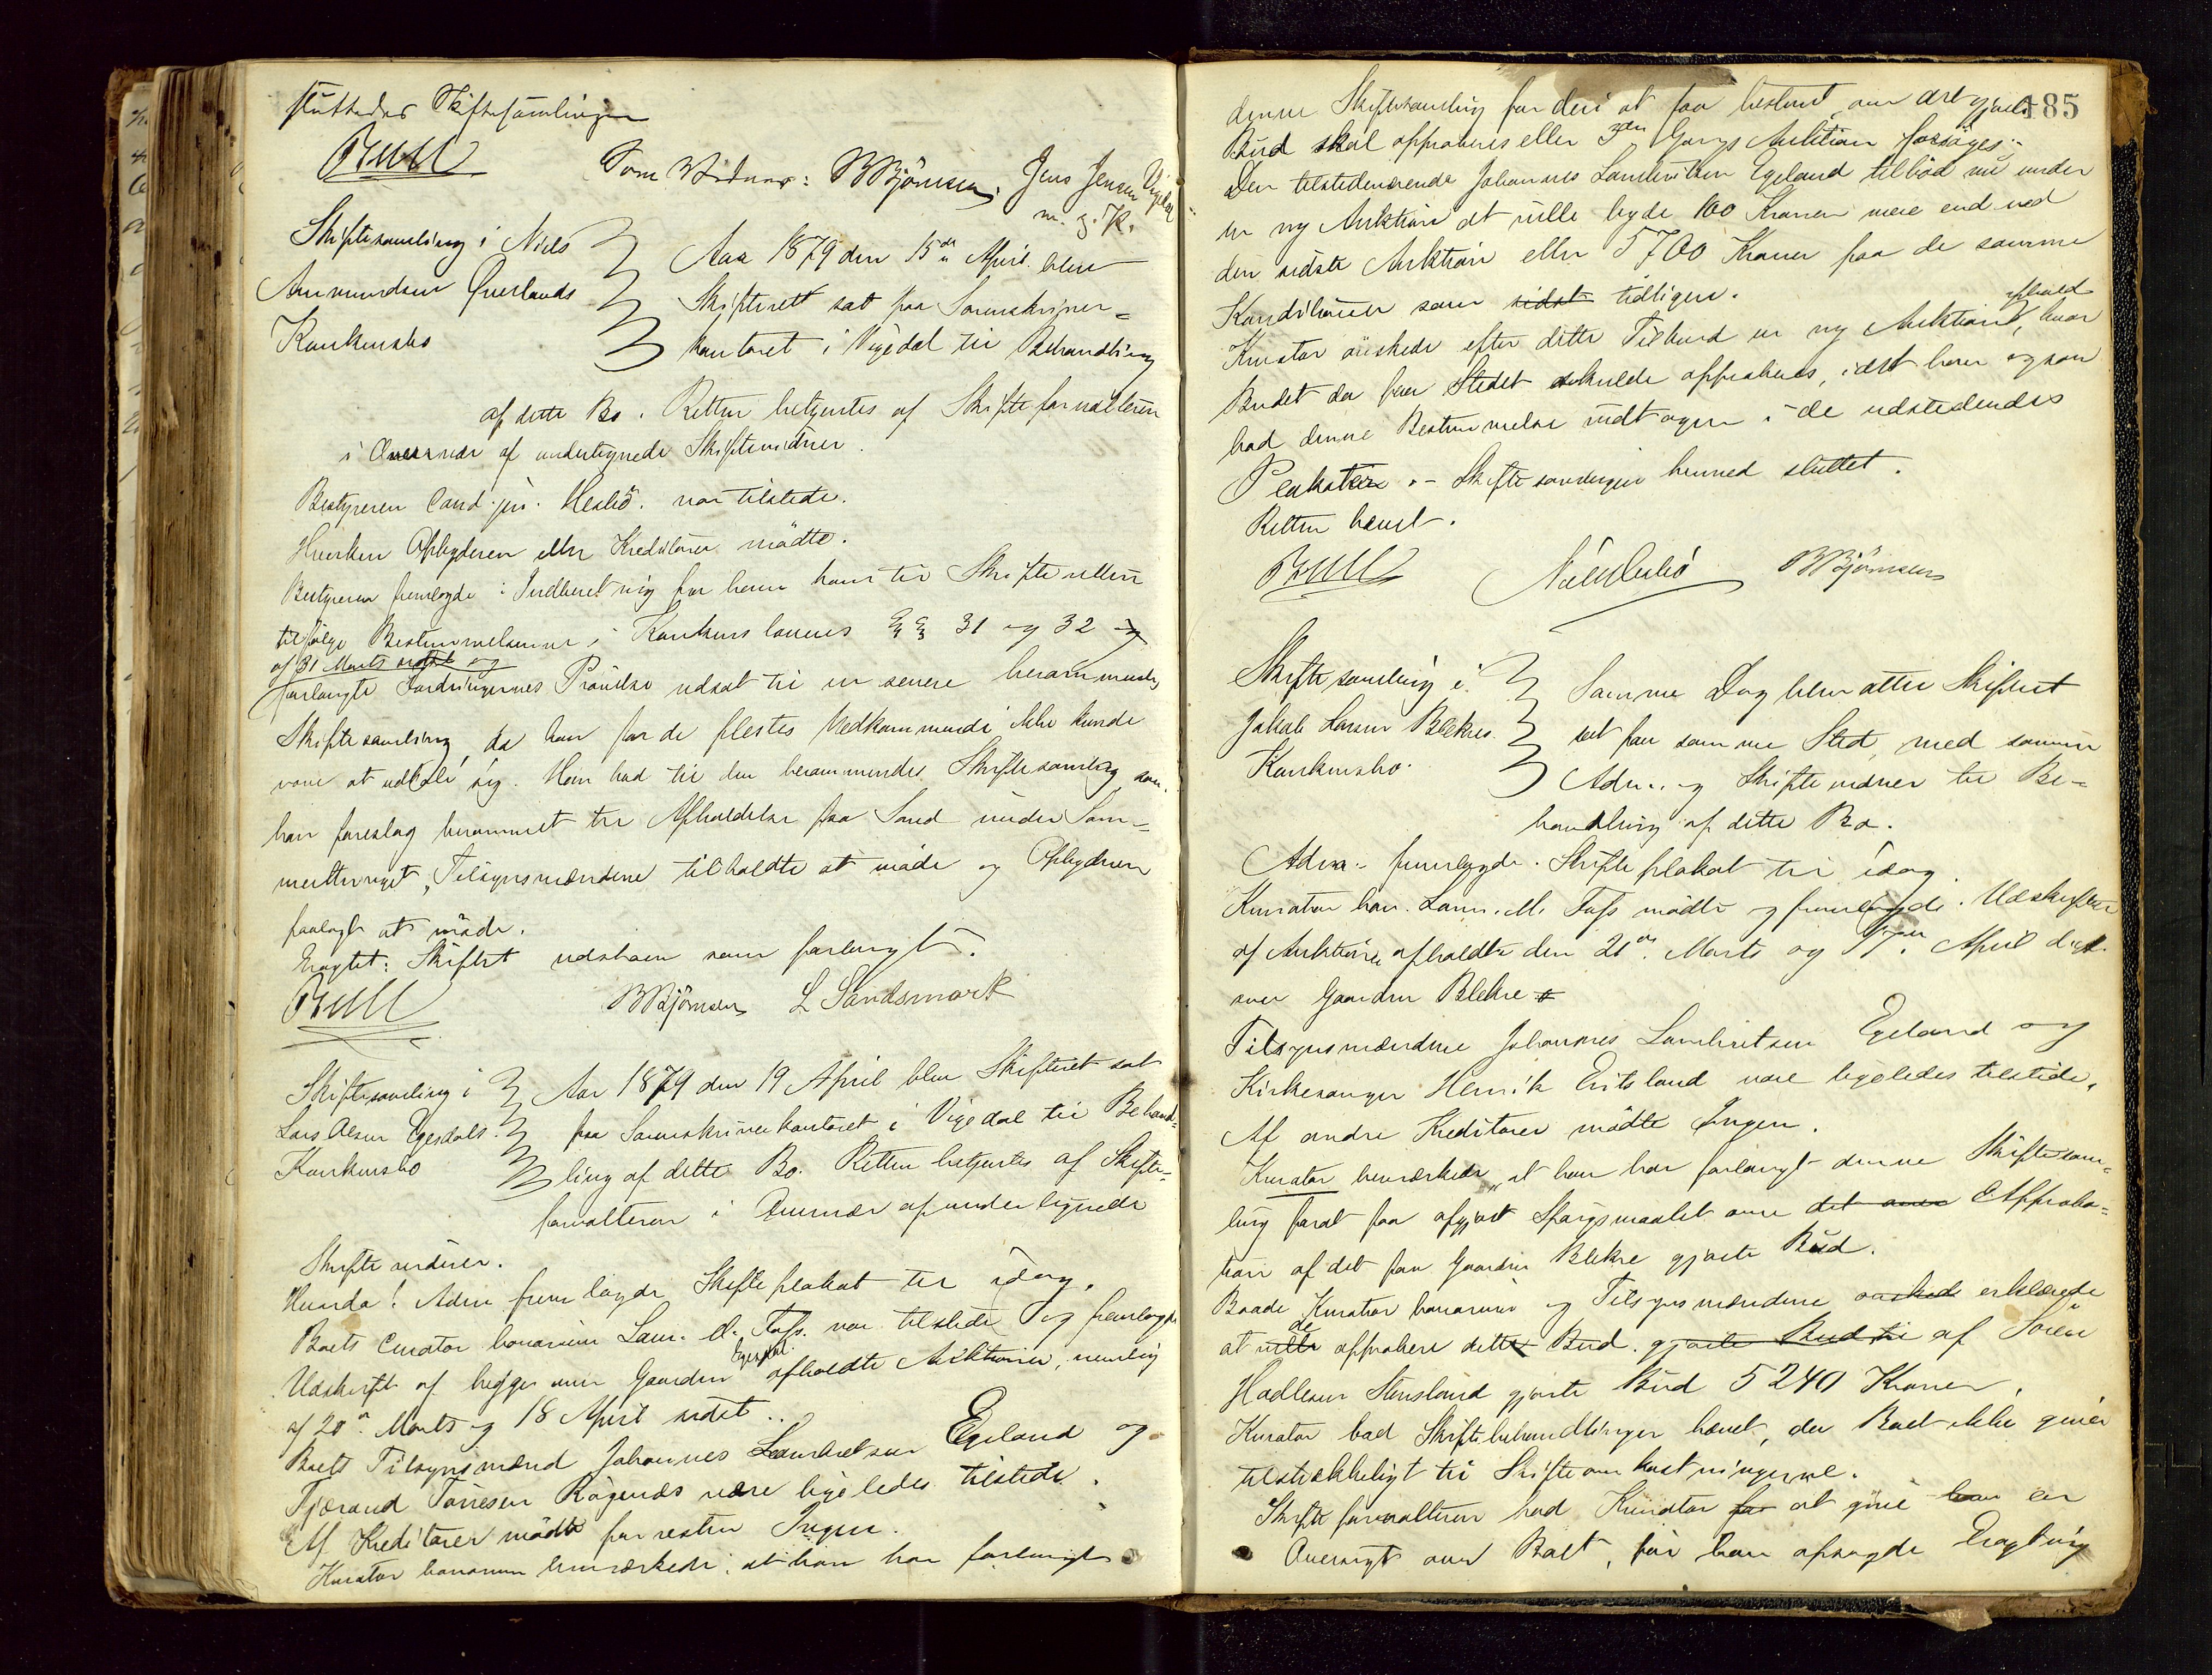 sluttedes Skiftesamlingen
Bull
Som Vidner: B Bjönsen. Jens Jensen
m. p. P.
Skiftesamling i Niels
Amundsen Qverlands
Konkursbo
Aar 1879 den 15de April blev
Skifteret sat paa Sorenskriver=
kontoret i Vigedal til Behandling
af dette Bo. Retten betjentes af Skifteforvalteren
i Overvær af undertegnede Skiftevidner.
Bestyreren Cand. jur. Hesbö. var tilstede.
Hverken Opbyderen eller Kreditorer mödte.
Bestyreren fremlagde: Indberetning fra ham til Skifteretten
tilfölge Bestemmelserne i Konkurslovens §§ 31 og 32 og
af 31 Marts sidstl. og
forlangte Fordringernes Prövelse udsat til en senere berammende
Skiftesamling, da han for de flestes Vedkommende ikke kunde
være at udtale sig. Han bad til den berammendes Skiftesamling som
han foreslog berammet til Afholdelse paa Sand under Som=
mertinget, Tilsynsmændene tilholdte at möde og Opbyderen
paalagt at möde.
Eragtet: Skiftet udstaar som forlangt.
Bull
B Bjönsen
L Sandsmark
Skiftesamling i
Lars Olsen Egesdals
Konkursbo
Aar 1879 den 19 April blev Skifteret sat
paa Sorenskriverkontoret i Vigedal til Behand=
ling af dette Bo. Retten betjentes af Skifte=
forvalteren i Overvær af undertegnede
Skiftevidner.
Hvorda! Adm fremlagde Skifteplakat til idag.
Boets Curator bonorum Laur. M. Fuss. var tilstede og fremlagde
Udskrift af begge over Gaarden Egesdal afholdte Auktioner, nemlig
af 20de Marts og 18 April sidstl..
Boets Tilsynsmænd Johannes Lambretsen Egeland og
Tjærand Torresen Rögenæs være ligeledes tilstede.
Af Kreditorer mödte forresten Ingen.
Kurator bonorum bemærkede: at han har forlangt
185
denne Skiftesamling for deri at faa bestemt om det gjorte
Bud skal approberes eller 3die Gangs Auktion forsöges.
Den tilstedeværende Johannes Lambretsen Egeland tilböd nu under
en ny Auktion at ville byde 100 Kroner mere end ved
den sidste Auktion eller 5700 Kroner paa de samme
Konditioner som sidst tidligere.
Kurator önskede efter dette Tilbud en ny Auktion afholdt, hvor
Budet da paa Stedet skulde approberes, idet han ogsaa
bad denne Bestemmelse indtagen i de udstedendes
Plakater. - Skiftesamlingen hermed sluttet.
Retten hævet.
Bull
B Bjönsen
Skiftesamling i
Jakob Larsen Blekres
Konkursbo.
Samme Dag blev atter Skifteret
sat paa samme Sted, med samme
Adm. og Skiftevidner til Be=
handling af dette Bo.
Adm. fremlagde. Skifteplakat til idag.
Kurator bon. Laur. M. Fuss mödte og fremlagde. Udskrifter
af Auktioner afholdte den 21de Marts og 17de April d. A.
over Gaarden Blekre
Tilsynsmændene Johannes Lambretsen Egeland og
Kirkesanger Henrik Eritsland vare ligeledes tilstede.
Af andre Kreditorer mödte Ingen.
Kurator bemærkede, at han har forlangt denne Skiftesam=
ling for at faa afgjort Spörgsmaalet om det over Approba=
tion af det paa Gaarden Blekre gjorte Bud.
Baade Kurator bonorum og Tilsynsmændene önskede erklærede
at ville de approbere dette Bud. gjorte Bud til af Sören
Hadlesen Stensland gjorte Bud 5240 Kroner.
Kurator bad Skiftebehandlingen hævet, da Boet ikke giver
tilstrækkeligt til Skifteomkostningerne.
Skifteforvalteren bad Kurator for at give ham en
Oversigt over Boet, för han afsagde Eragtning